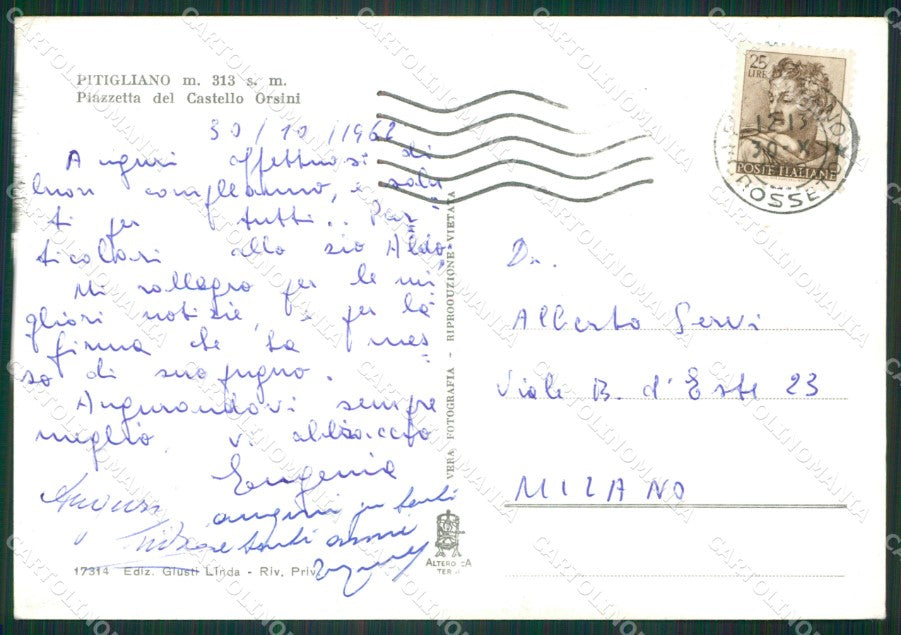 PITIGLIANO m. 313 s. m.
Piazzetta del Castello Orsini
30/10/1962
Auguri affettuosi di
buon compleanno, e salu-
ti per tutti.. Par-
ticolari allo zio Aldo.
Mi rallegro per le mi-
gliori notizie, e per la
firma che ha mes-
so di suo pugno.
Augurandovi sempre
meglio vi abbraccio
Eugenia
Auguri
auguri per tanti
tanti anni
17314 Ediz. Giusti Linda - Riv. Priv.
VERA FOTOGRAFIA - RIPRODUZIONE VIETATA
25
LIRE
POSTE ITALIANE
30 X
Dr.
Alberto Servi
Viale B. d'Este 23
MILANO
CARTOLINOMANIA